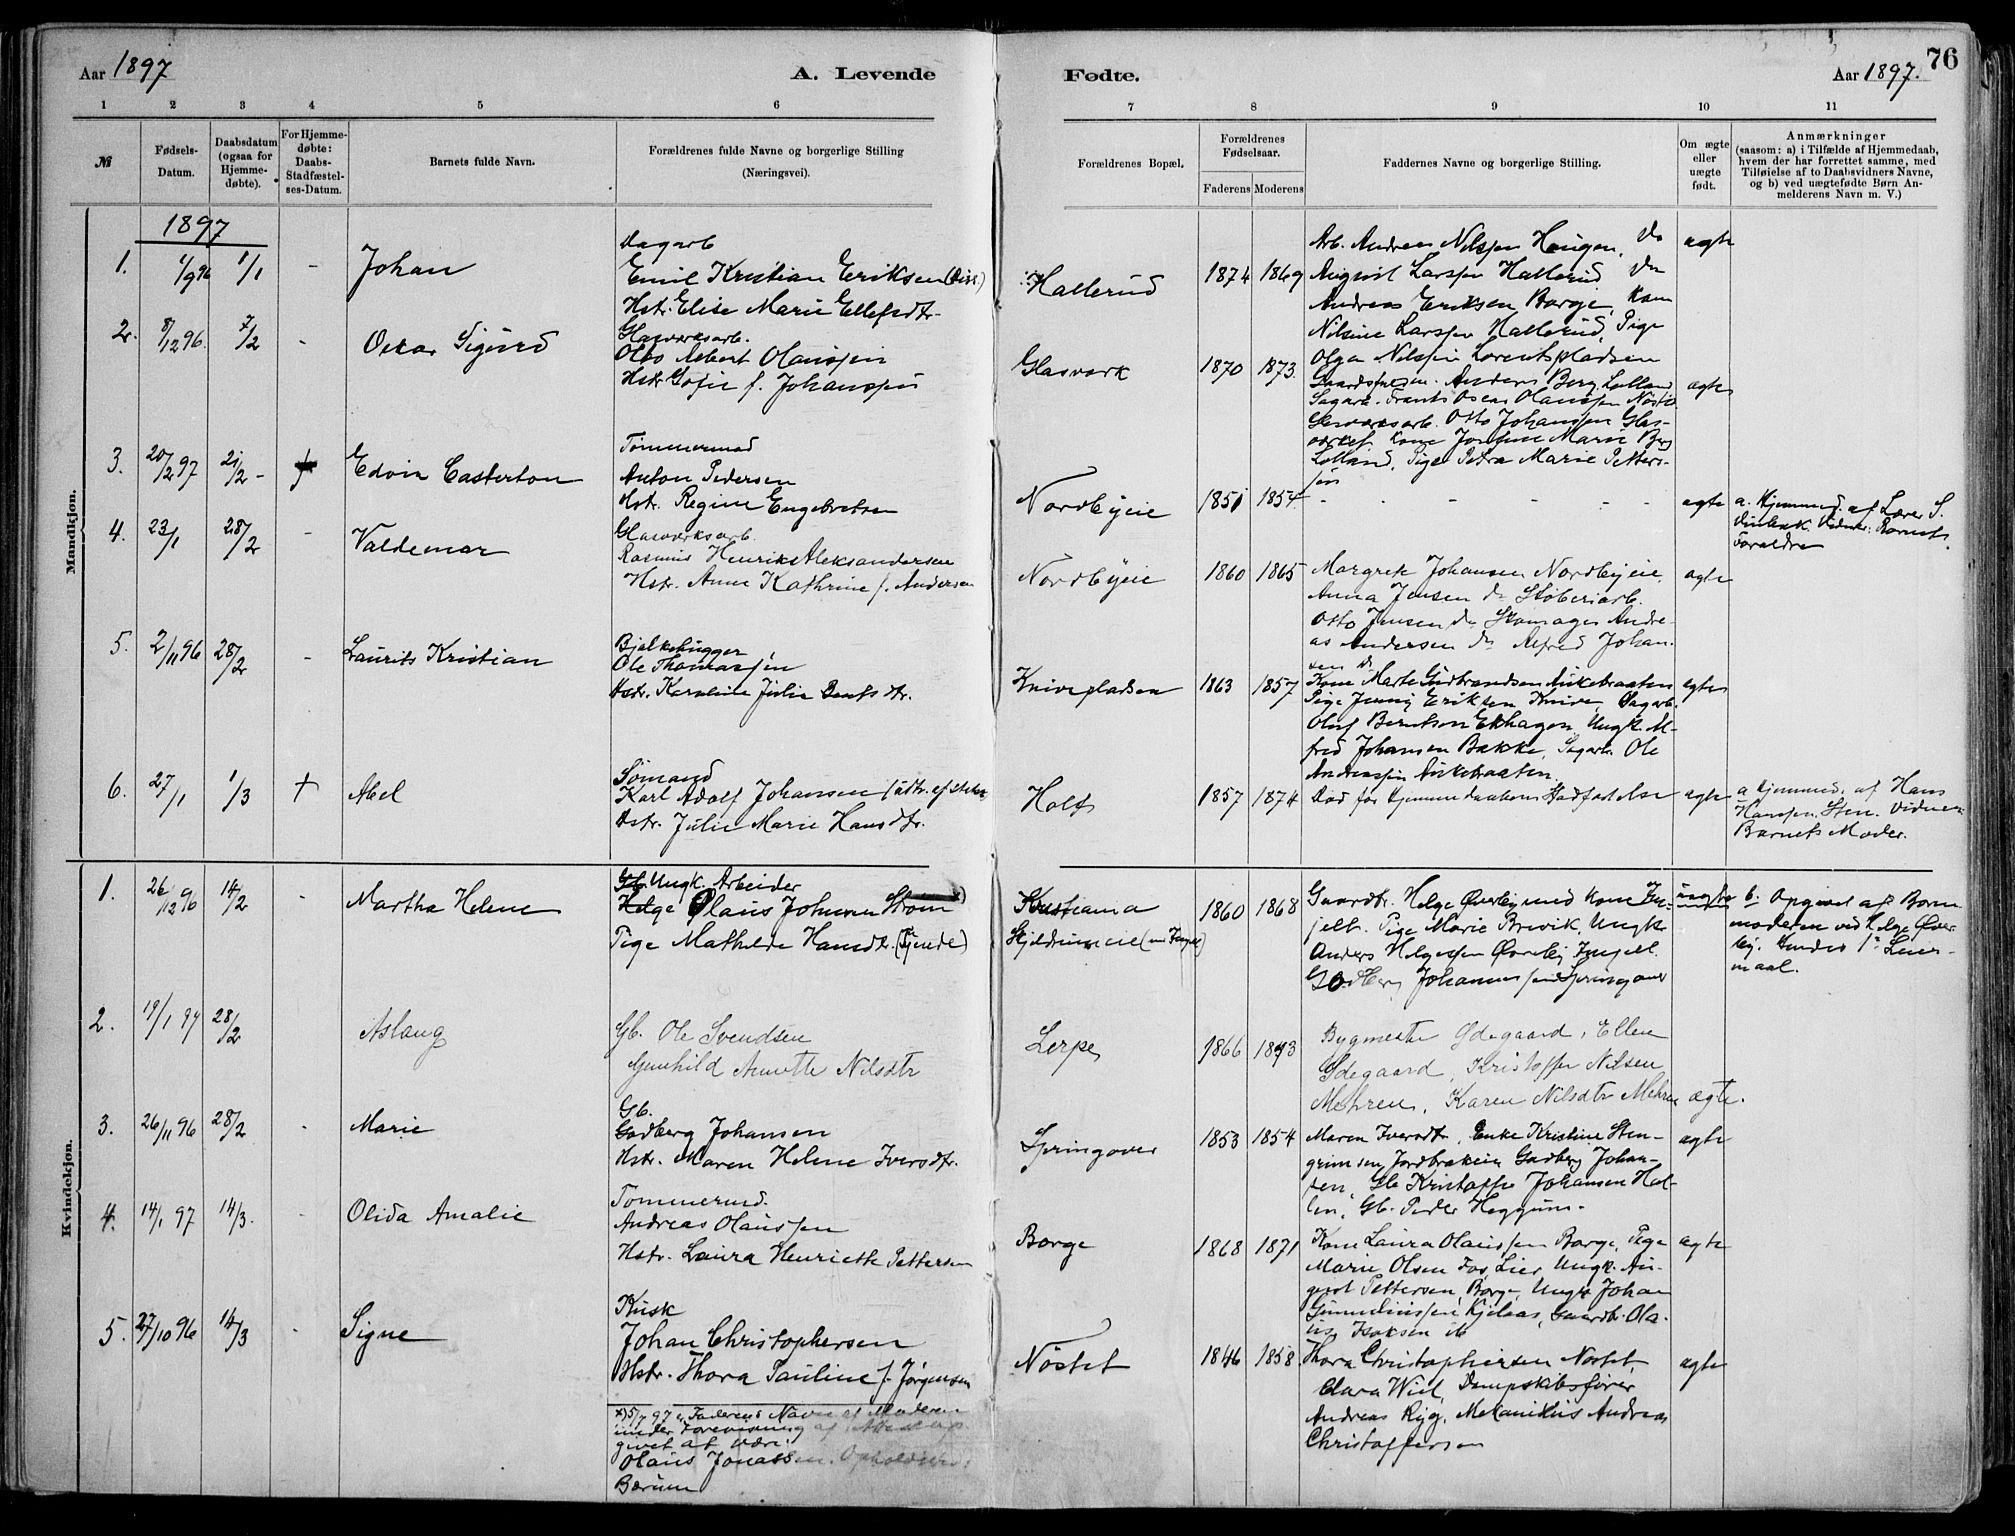 Aar 1897
A. Levende
Fødte.
Aar 1897.
76
1 2 3 4 5 6 7 8 9 10 11
№
Fødsels-
Datum.
Daabsdatum
(ogsaa for
Hjemme-
døbte).
For Hjemme-
døbte:
Daabs-
Stadfæstel-
ses-Datum.
Barnets fulde Navn.
Forældrenes fulde Navne og borgerlige Stilling
(Næringsvei).
Forældrenes Bopæl.
Forældrenes
Fødselsaar.
Faderens Moderens
Faddernes Navne og borgerlige Stilling.
Om ægte
eller
uægte
født.
Anmærkninger
(saasom: a) i Tilfælde af Hjemmedaab,
hvem der har forrettet samme, med
Tilføielse af to Daabsvidners Navne,
og b) ved uægtefødte Børn An-
melderens Navn m. V.)
Mandkjøn.
1897
1. 1/9 96 1/1 - Johan
Dagarb
Emil Kristian Eriksen (Diss.)
Hstr. Elise Marie Ellefsdtr.
Hallerud 1874 1869
Arb. Andreas Nilsen Haugen, Do
August Larssen Hallerud Do
Andreas Eriksen Borge, Kone
Nilsine Larssen Hallerud, Pige
Olga Nilssen Lorentspladsen
ægte
2. 8/12 96. 7/2 - Oskar Sigurd
Glasværksarb.
Olaf Albert Olaussen
Hstr Sofie f. Johanssen
Glasværk 1870 1873.
Anders Berg Lolland
Sagarb. Frants Oscar Olaussen Nøste
Glasværksarb. Otto Johanssen Glas-
værket Kone Josefine Marie Berg
Lolland, Pige Petra Marie Petters-
sen
ægte
3. 20/2 97 21/2 - Edvin Casterton
Tømmermand
Anton Pedersen
Hstr. Regine Engebretsen
Nordbyeie 1851 1854 - - - - - -
ægte a. Hjemmed. af Lærer S.
Vidner. Barnets
Forældre
4. 23/1 28/2 - Valdemar
Glasværksarb.
Rasmus Henrik Aleksandersen
Hstr. Anne Kathrine f. Andersen
Nordbyeie 1860 1865
Margrete Johansen Nordbyeie
Anna Jensen do Støberiarb.
Otto Jensen do Skomager Andre-
as Andersen do Alfred Johan-
sen do
ægte
5. 2/11 96 28/2 - Laurits Kristian
Bjelkehugger
Ole Thomassen
Hstr. Karoline Julie Berntsdtr.
Knivepladsen 1863 1857
Kone Marte Gudbrandsen Askebraaten
Pige Jenny Eriksen Knive, Dagarb.
Oluf Berntsen Ekhagen, Ungk. Al-
fred Johansen Bakke, Sagarb. Ole
Andreassen Askebraaten.
ægte
6. 27/1 1/3 + Abel
Sømand
Karl Adolf Johansen
Hstr. Julie Marie Hansdtr.
Holt 1857 1874
Død før Hjemmedaabens Stadfæstelse ægte
a Hjemmed. af Hans
Hanssen Sten. Vidner
Barnets Moder.
Kvindekjøn.
1. 26/12 96 14/2 - Martha Helene
Gb. Ungk. Arbeider
Helge Olaus Johansen Strøm
Pige Mathilde Hansdtr. (Tjenede)
Kristiania
1860 1868
Gaardbr. Helge Øverby med Kone In-
jelb. Pige Marie Brevik, Ungk
Anders Helgesen Øverby
Godberg Johannessen Springover
uægte
b. Opgivet af Barne-
moderen ved Helge Øver-
by. Hendes 1ste Leier-
maal.
2. 19/1 97 28/2 - Aslaug
Gb. Ole Svendsen
Gunhild Anette Nilsdtr
Lerpe 1866 1873
Bygmester Ødegaard, Ellen
Ødegaard, Kristoffer Nilsen
Mehren, Karen Nilsdtr Mehren ægte.
3. 26/11 96 28/2 - Marie
Gb.
Godberg Johansen
Hstr. Maren Helene Iversdtr.
Springover 1853 1854
Maren Iversdtr, Enke Kristine Sten-
grimsen, Godberg Johan-
sen, Gb Kristoffer Johansen Hol-
len, Gb. Peder Heggum.
ægte
4. 14/1 97 14/3. - Olida Amalie
Tømmermd.
Andreas Olaussen
Hstr. Laura Henriette Pettersen
Borge 1868 1871
Kone Laura Olaussen Borge, Pige
Marie Olsen Fos, Lier Ungk. Au-
gust Pettersen, Borge, Ungk Johan
Gunnulfussen Kjelaas, Gaardbr. Ola-
us Isaksen ib
ægte
5. 27/10 96 14/3 - Signe
Kusk
Johan Christophersen
Hstr. Thora Pauline f. Jørgensen
Nøstet 1846 1858.
Thora Christophersen Nøstet,
Clara Wiel, Dampskibsfører
Andreas Ryg, Mekanikus Andreas
Christoffersen
ægte
x) 5/7 97 Faderens Navn af Moderen
under Forevisning af op-
givet at være:
Olaus Jonassen. Opholdssted:
Bærum